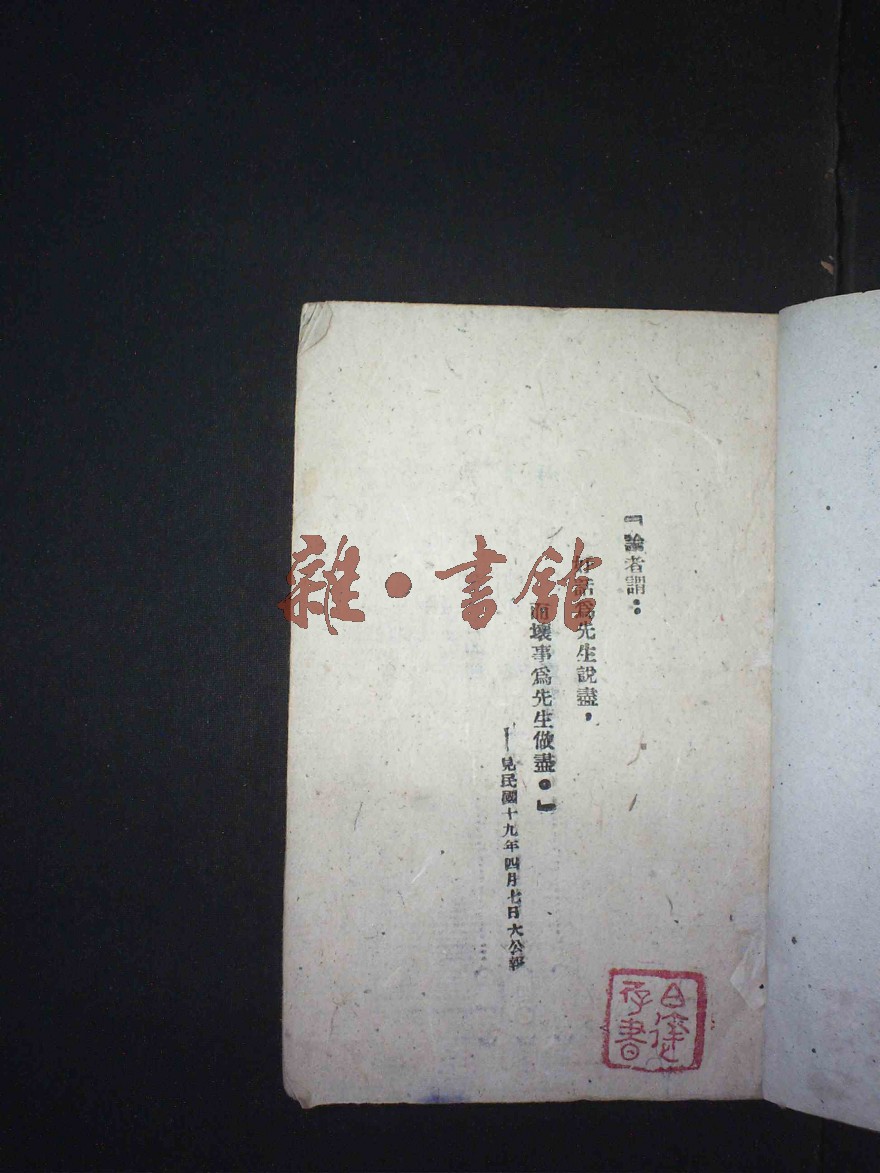 『論者謂：
好話爲先生說盡，
而壞事爲先生做盡。』
—見民國十九年四月七日大公報
雜·書館
存書